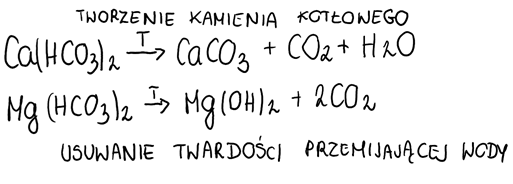 TWORZENIE KAMIENIA KOTŁOWEGO
Ca(HCO₃)₂ →T CaCO₃ + CO₂ + H₂O
Mg(HCO₃)₂ →T Mg(OH)₂ + 2CO₂
USUWANIE TWARDOŚCI PRZEMIJAJĄCEJ WODY